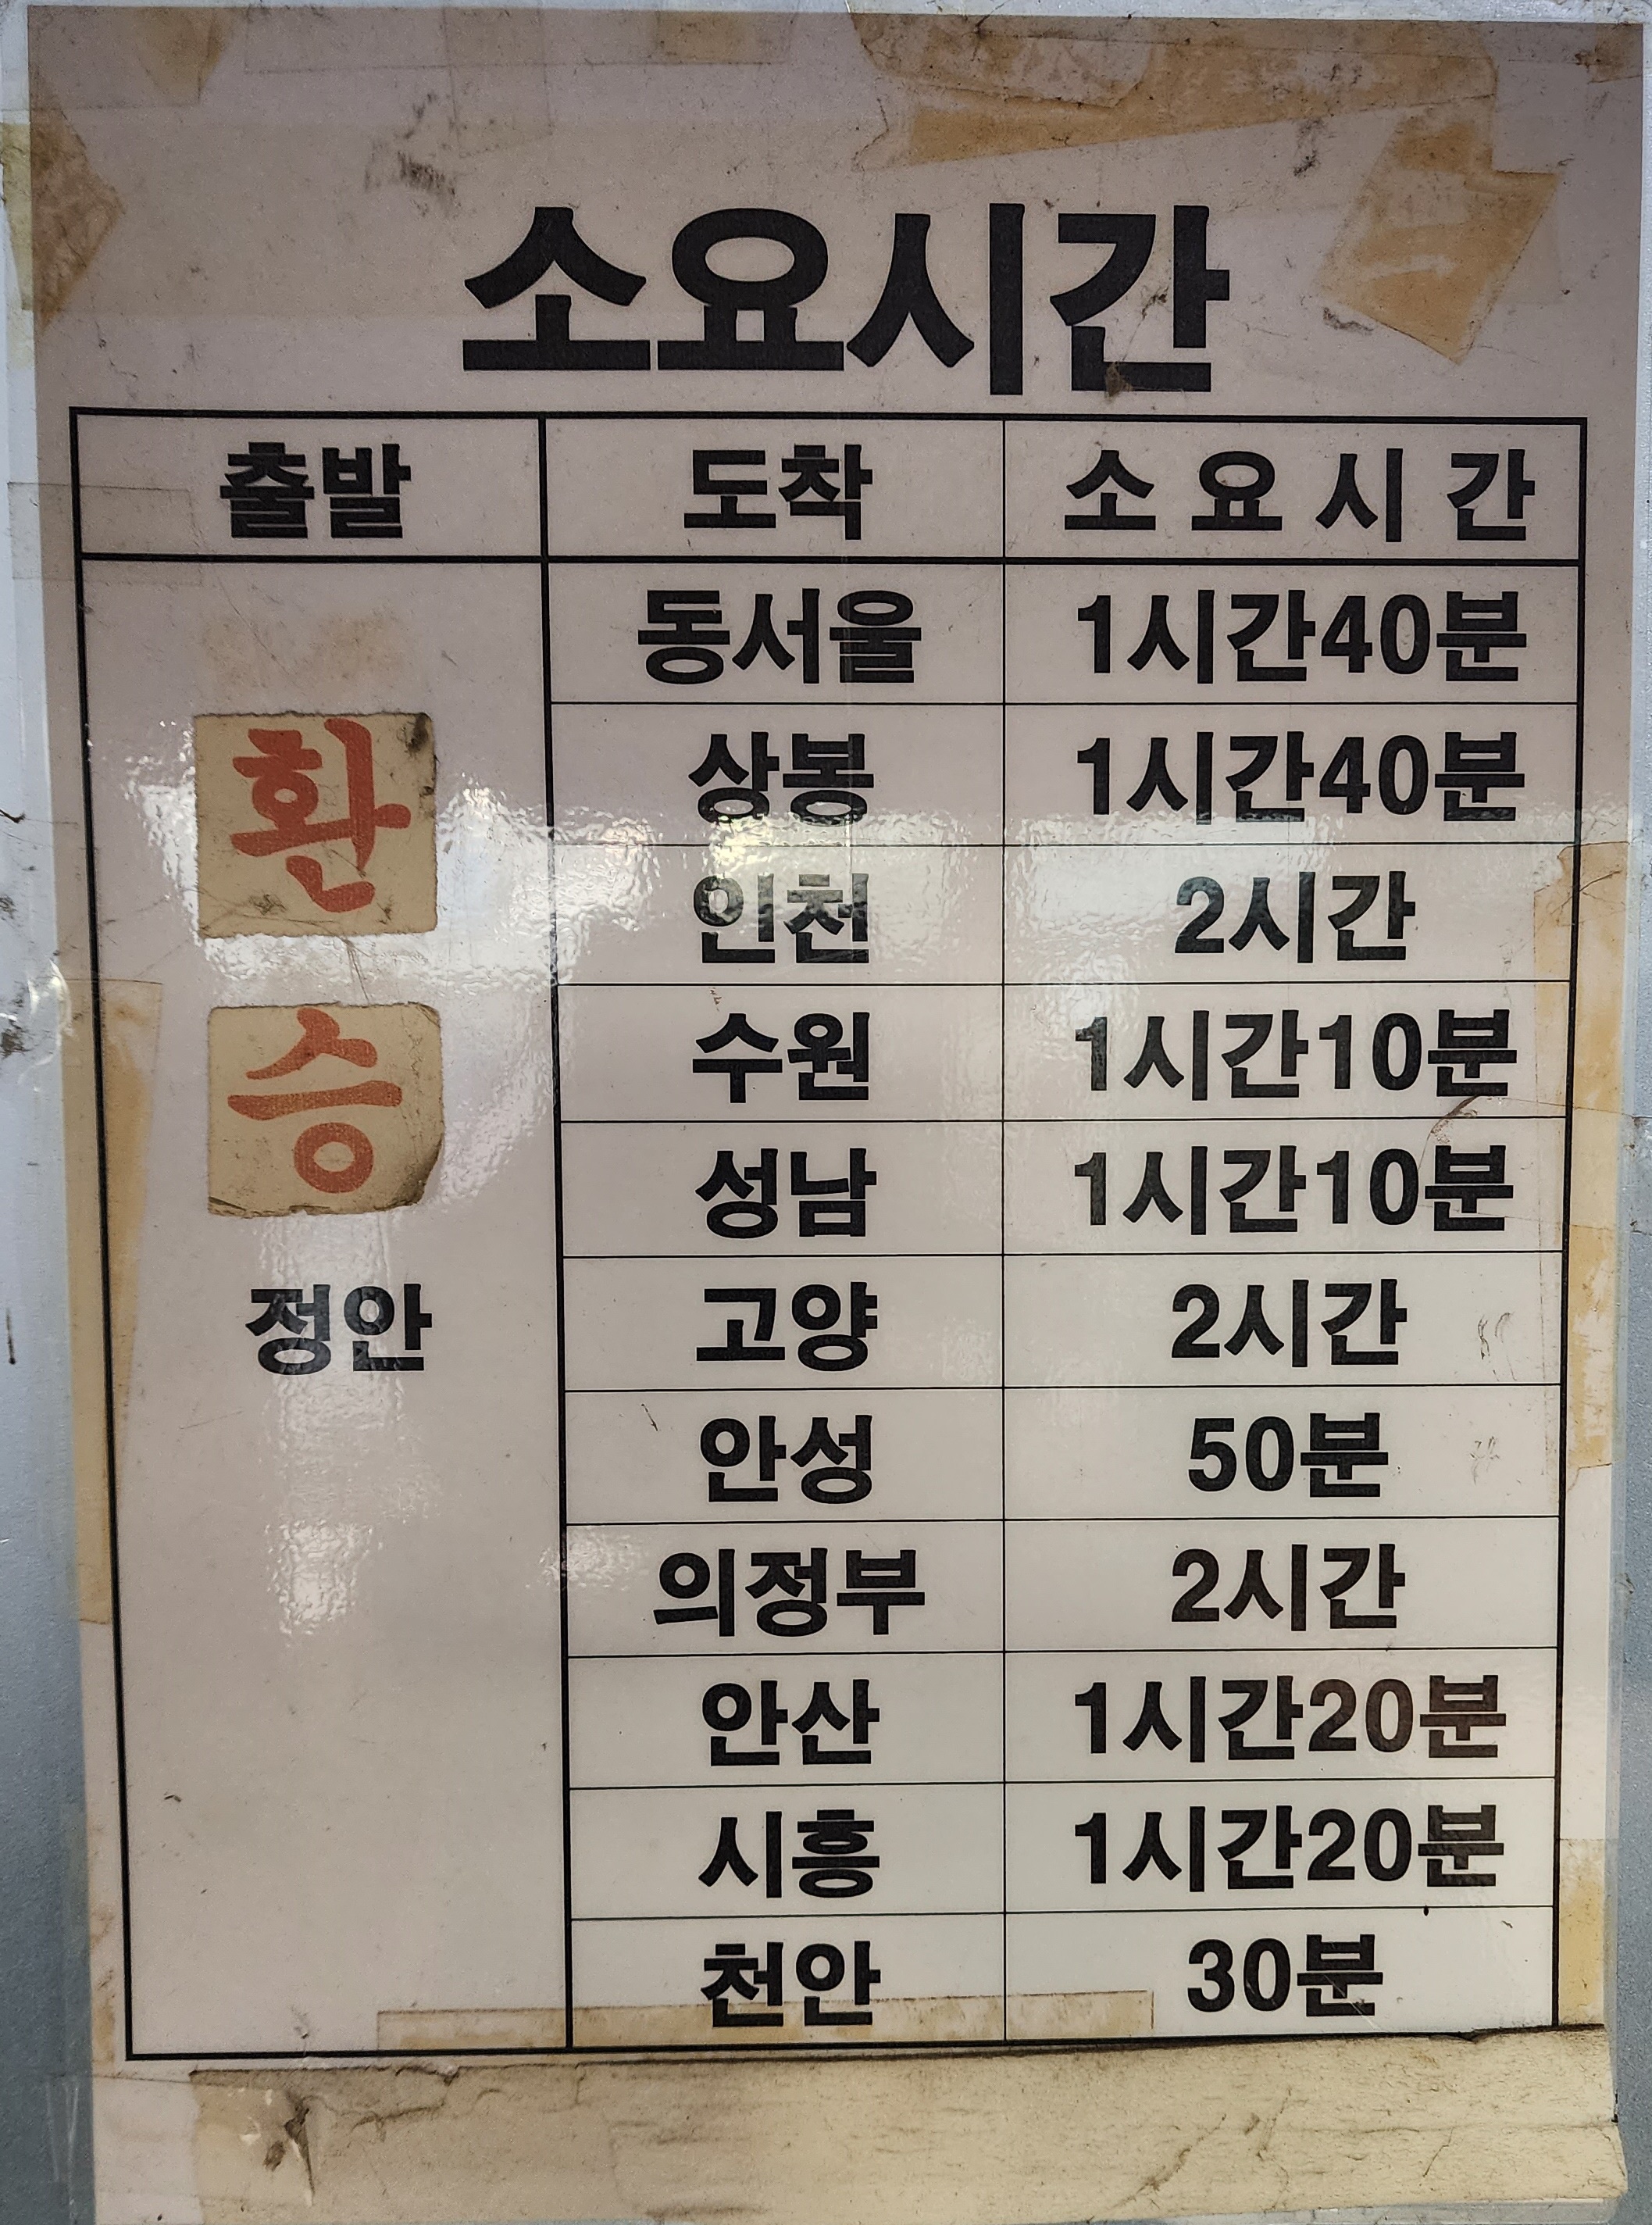 소요시간
출발 도착 소요시간
동서울 1시간40분
상봉 1시간40분
환
인천 2시간
수원 1시간10분
승
성남 1시간10분
정안
고양 2시간
안성 50분
의정부 2시간
안산 1시간20분
시흥 1시간20분
천안 30분